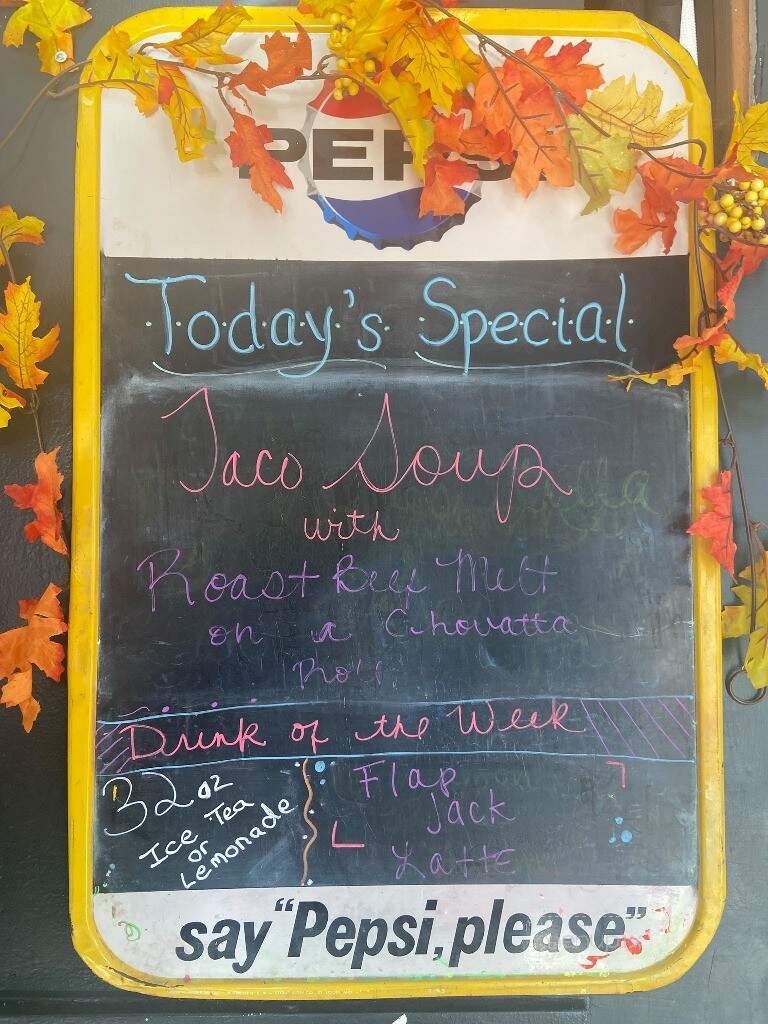 PEPS
Today's Special
Taco Soup
with
Roast Beef Melt
on a Chovatta
Roll
Drink of the Week
32 oz
Ice Tea
or
Lemonade
Flap
Jack
Latte
say "Pepsi, please"